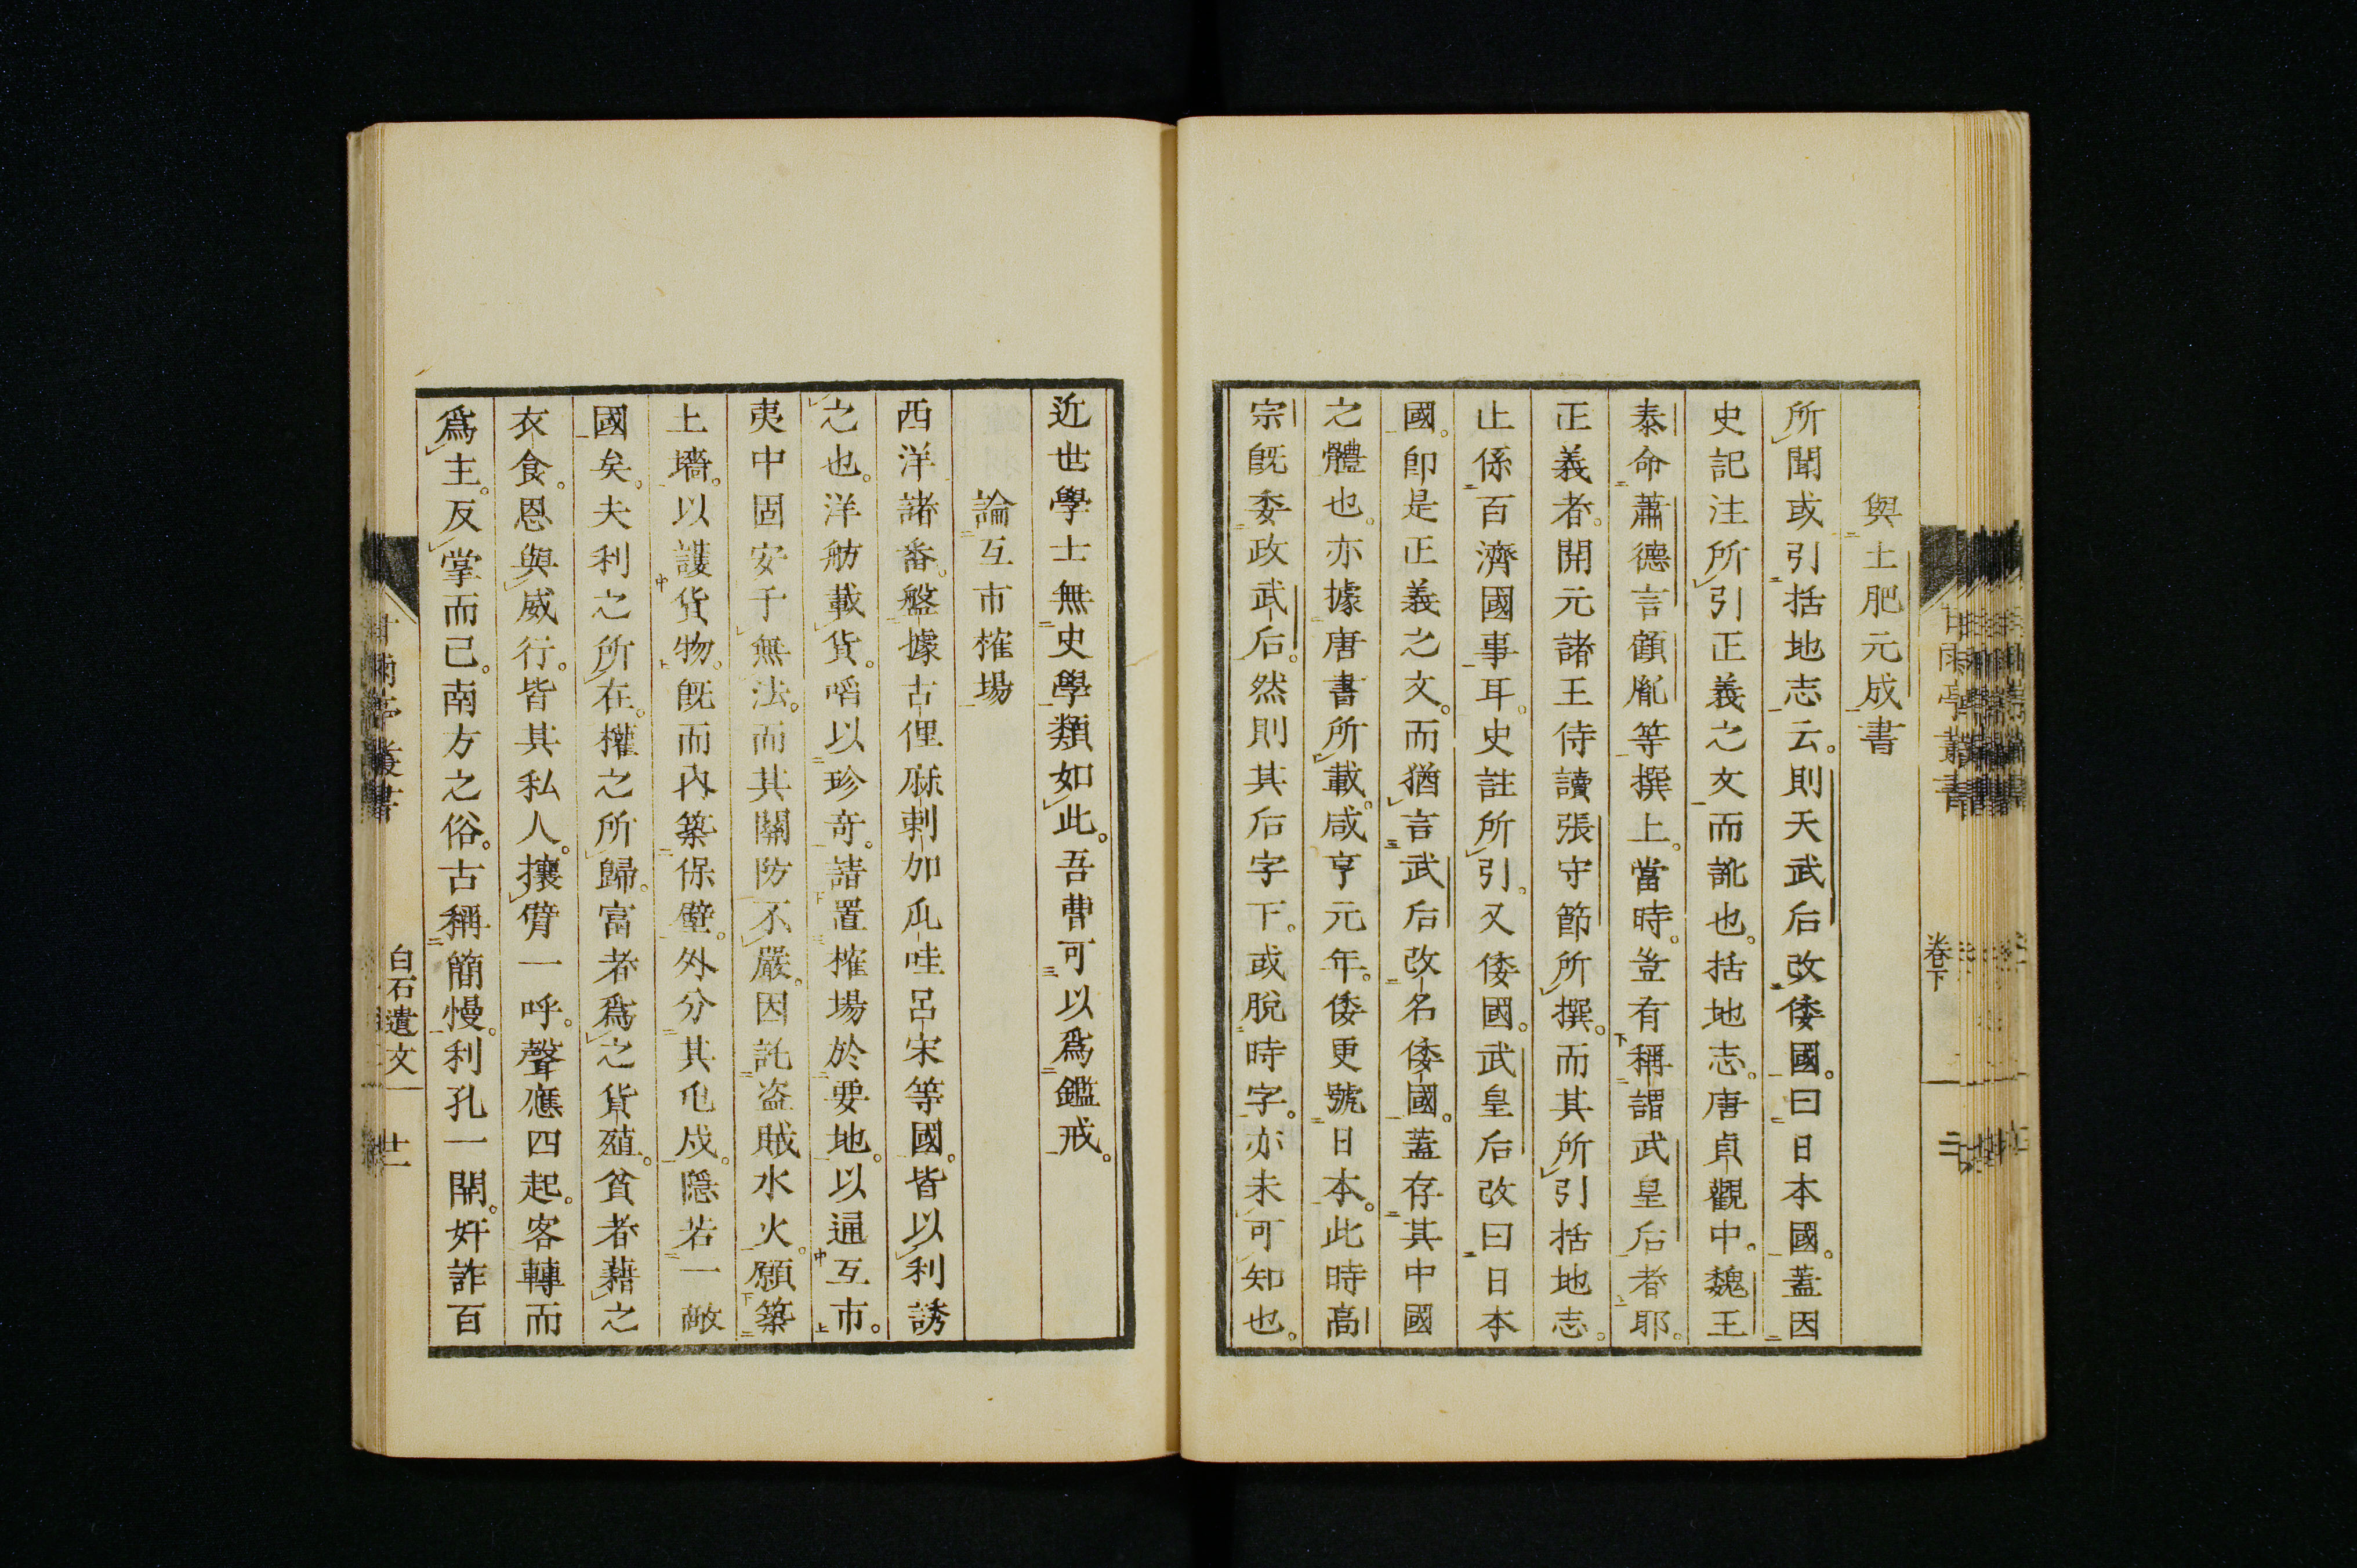 與土肥元成書
所聞或引括地志云。則天武后改倭國。曰日本國。蓋因
史記注所引正義之文而訛也。括地志。唐貞觀中。魏王
泰命蕭德言顧胤等撰上。當時。豈有稱謂武皇后者耶。
正義者。開元諸王侍讀張守節所撰。而其所引括地志。
止係百濟國事耳。史註所引。又倭國。武皇后改曰日本
國。卽是正義之文。而猶言武后改名倭國。蓋存其中國
之體也。亦據唐書所載。咸亨元年。倭更號日本。此時高
宗既委政武后。然則其后字下。或脫時字。亦未可知也。
甘雨亭叢書
卷下
近世學士無史學類如此。吾曹可以爲鑑戒。
論互市榷場
西洋諸番。盤據古俚麻剌加瓜哇呂宋等國。皆以利誘
之也。洋舫載貨。啗以珍奇。請置榷場於要地。以通互市。
夷中固安于無法。而其關防不嚴。因託盗賊水火。願築
土墻。以護貨物。既而內築保壁。外分其屯戍。隱若一敵
國矣。夫利之所在。權之所歸。富者爲之貨殖。貧者藉之
衣食。恩與威行。皆其私人。攘臂一呼。聲應四起。客轉而
爲主。反掌而已。南方之俗。古稱簡慢。利孔一開。奸詐百
甘雨亭叢書
白石遺文
廿一